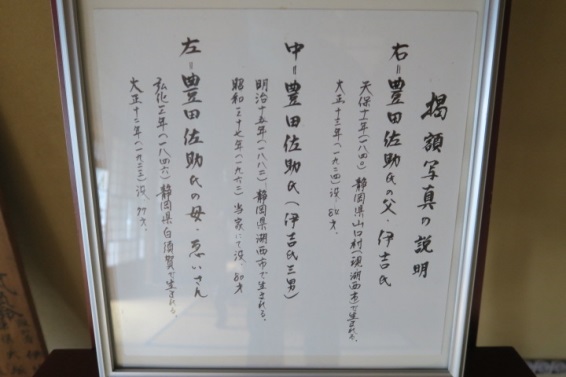 掲額写真の説明
右=豊田佐助氏の父 伊吉氏
天保十一年(一八四〇)静岡県山口村(現湖西市)で生まれる、
大正十三年(一九二四)没、84才
中=豊田佐助氏(伊吉氏三男)
明治十五年(一八八二)静岡県湖西市で生まれる、
昭和三十七年(一九六二)当家にて没、80才
左=豊田佐助氏の母・ゑいさん
弘化三年(一八四六)静岡県白須賀で生まれる、
大正十二年(一九二三)没、77才、